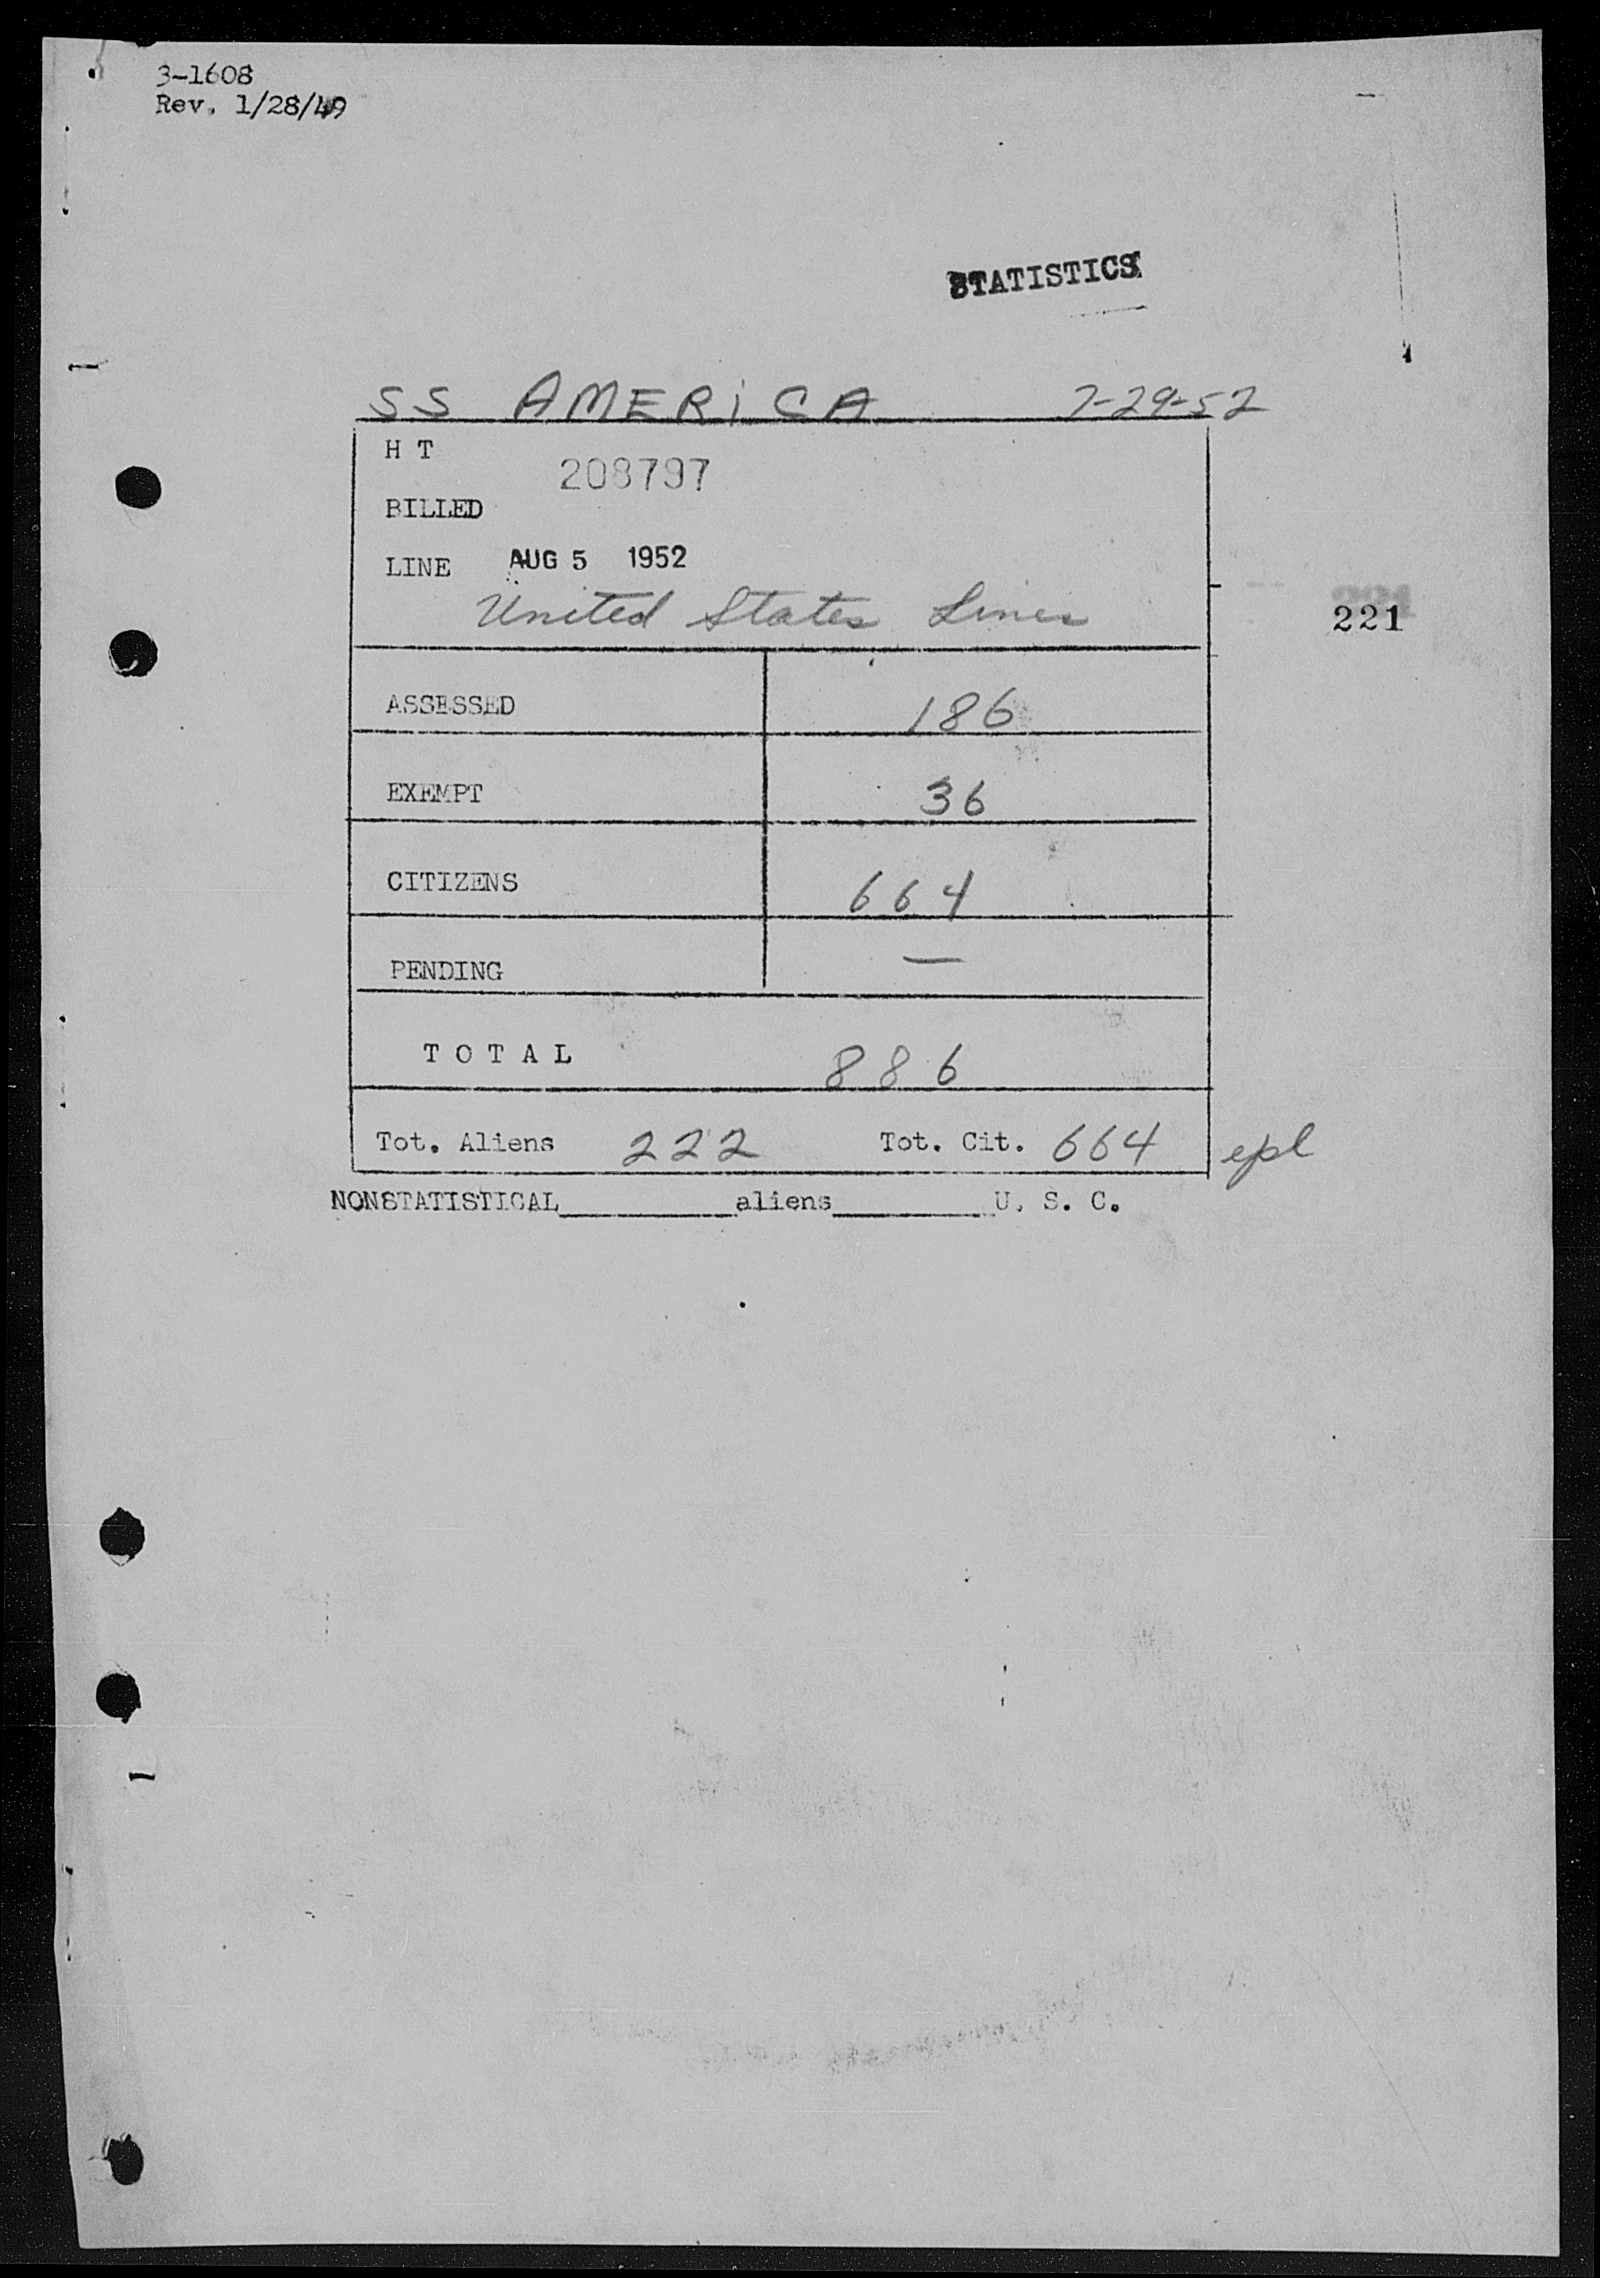 3-1608
Rev. 1/28/49
STATISTICS
SS AMERiCA 7-29-52
H T
208797
BILLED
LINE AUG 5 1952
United States Lines
221
ASSESSED 186
EXEMPT 36
CITIZENS 664
PENDING —
T O T A L 886
Tot. Aliens 222 Tot. Cit. 664 epl
NONSTATISTICAL__________aliens__________U. S. C.